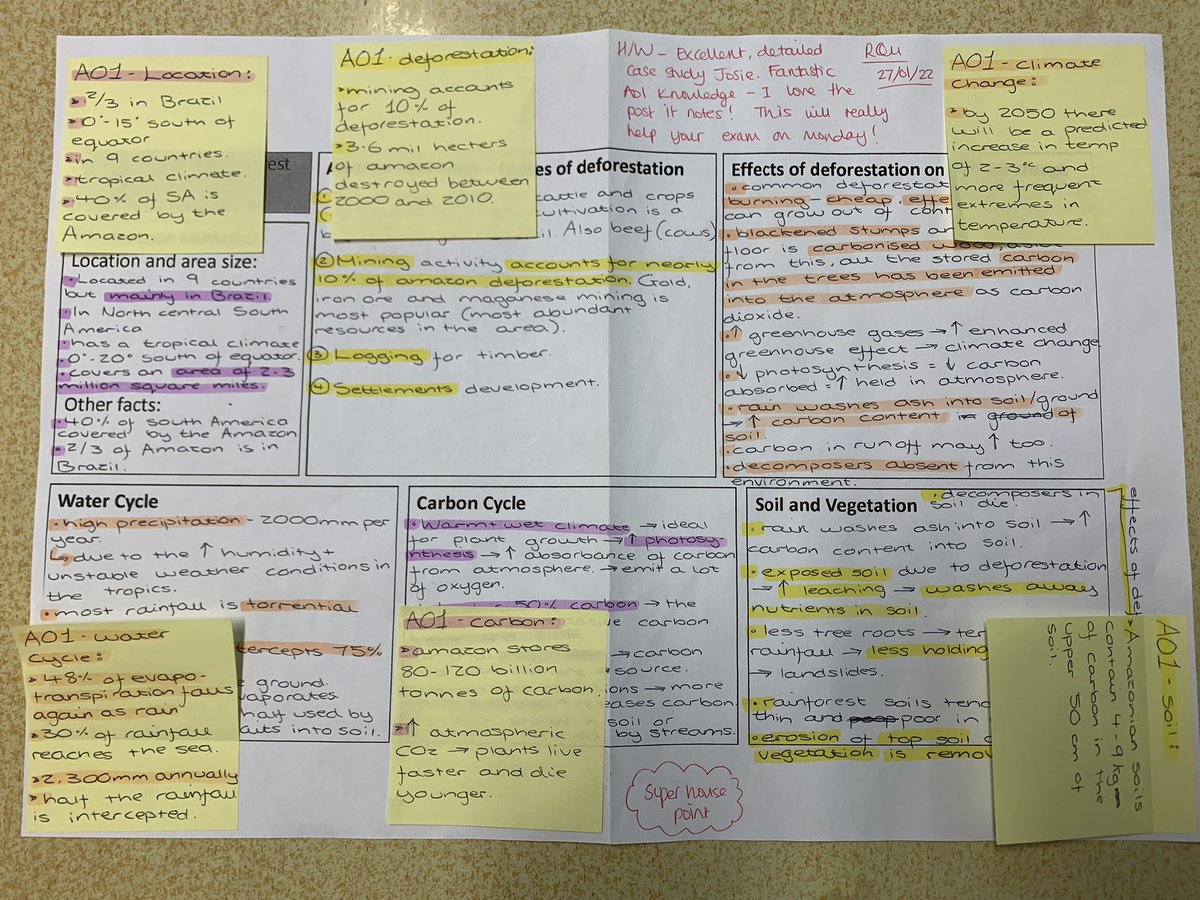 AO1 - Location:
> 2/3 in Brazil
> 0°-15° south of
equator
> in 9 countries.
> tropical climate.
> 40% of SA is
covered by the
Amazon.
AO1 - deforestation:
> mining accounts
for 10% of
deforestation.
> 3.6 mil hecters
of amazon
destroyed between
2000 and 2010.
H/W - Excellent, detailed
case study Josie. Fantastic
AO1 knowledge - I love the
post it notes! This will really
help your exam on Monday!
RQu
27/01/22
AO1 - climate
change:
> by 2050 there
will be a predicted
increase in temp
of 2-3°c and
more frequent
extremes in
temperature.
Location and area size:
• Located in 9 countries
but mainly in Brazil.
• In North central South
America
• has a tropical climate
• 0°-20° south of equator.
• covers an area of 2.3
million square miles.
Other facts:
• 40% of south America
covered by the Amazon
• 2/3 of Amazon is in
Brazil.
es of deforestation
cattle and crops
cultivation is a
Also beef (cows)
② Mining activity accounts for nearly
10% of amazon deforestation. Gold,
iron ore and maganese mining is
most popular (most abundant
resources in the area).
③ Logging for timber.
④ Settlements development.
Effects of deforestation on
• common deforestat
burning - cheap, effe
can grow out of cont
• blackened stumps an
floor is carbonised wood, aside
from this, all the stored carbon
in the trees has been emitted
into the atmosphere as carbon
dioxide.
• ↑ greenhouse gases → ↑ enhanced
greenhouse effect → climate change
• ↓ photosynthesis = ↓ carbon
absorbed = ↑ held in atmosphere.
• rain washes ash into soil/ground
→ ↑ carbon content in ground of
soil.
• carbon in runoff may ↑ too.
• decomposers absent from this
environment.
Water Cycle
• high precipitation - 2000mm per
year.
↳ due to the ↑ humidity +
unstable weather conditions in
the tropics.
• most rainfall is torrential
tercepts 75%
ground.
vaporates.
half used by
into soil.
AO1 - water
cycle:
> 48% of evapo-
transpiration falls
again as rain
> 30% of rainfall
reaches the sea.
> 2,300mm annually
> half the rainfall
is intercepted.
Carbon Cycle
• Warm + wet climate → ideal
for plant growth → ↑ photosy
nthesis → ↑ absorbance of carbon
from atmosphere. → emit a lot
of oxygen.
50% carbon → the
carbon
→ carbon
source.
ions → more
eases carbon.
soil or
by streams.
AO1 - carbon:
> amazon stores
80-120 billion
tonnes of carbon.
> ↑ atmospheric
CO2 → plants live
faster and die
younger.
Soil and Vegetation
• decomposers in
soil die.
• rain washes ash into soil → ↑
carbon content into soil.
• exposed soil due to deforestation
→ ↑ leaching → washes away
nutrients in soil
• less tree roots →
rainfall → less holding
→ landslides.
• rainforest soils tend
thin and poor poor in
• erosion of top soil
vegetation is remov
effects of def
AO1 - soil:
> Amazonian soils
contain 4-9 kg
of carbon in the
upper 50 cm of
soil.
Super house
point